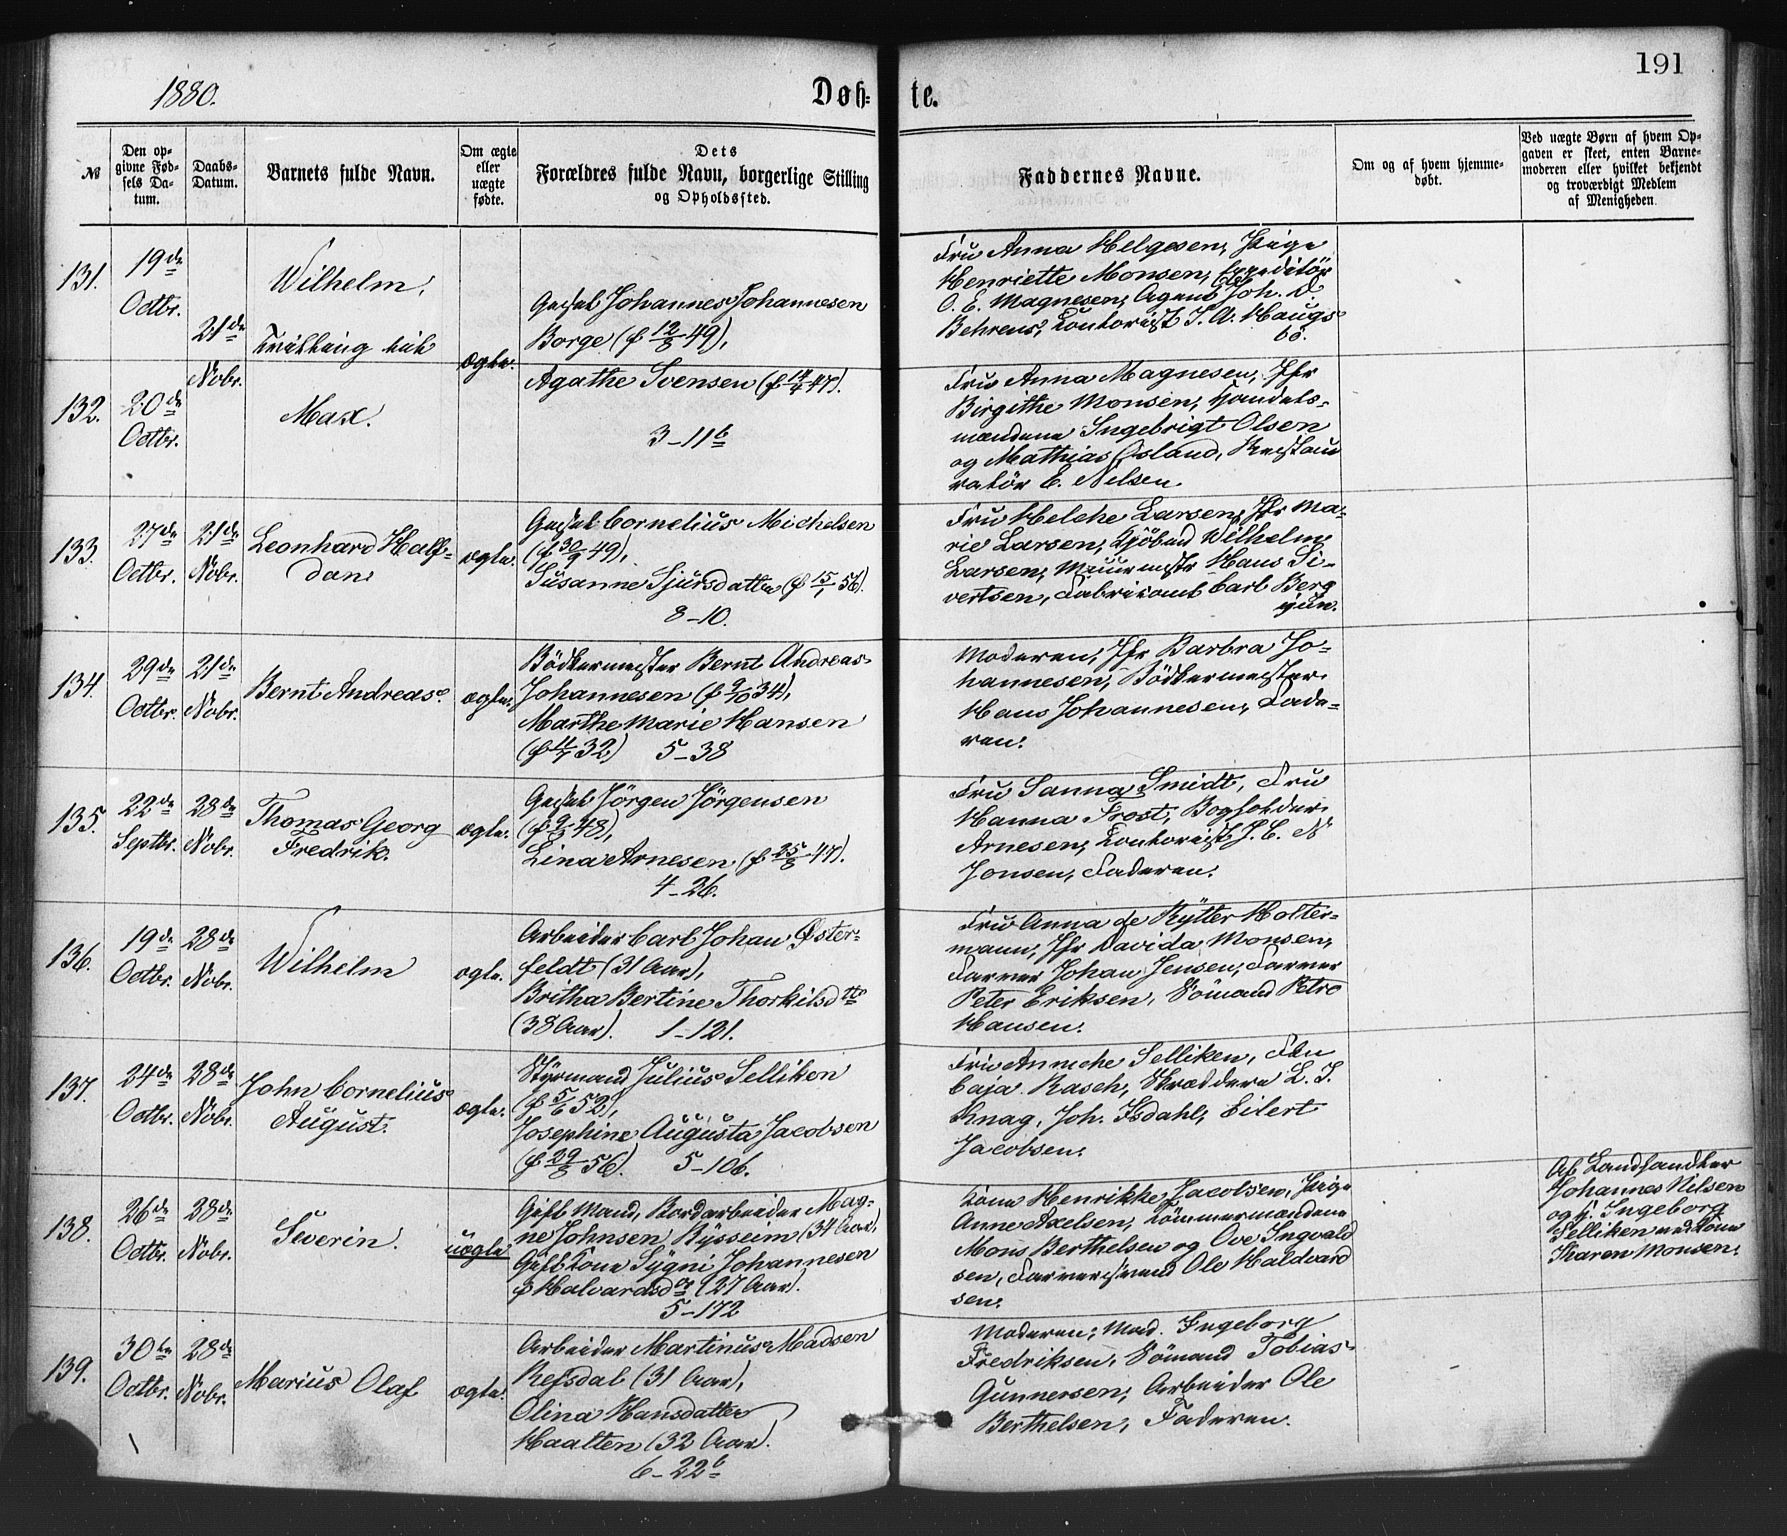 1880.
Døb-
te.
191
№
Den op-
givne Fød-
sels Da-
tum.
Daabs-
Datum.
Barnets fulde Navn.
Om ægte
eller
uægte
fødte.
Dets
Forældres fulde Navn, borgerlige Stilling
og Opholdssted.
Faddernes Navne.
Om og af hvem hjemme-
døbt.
Ved uægte Børn af hvem Op-
gaven er skeet, enten Barne-
moderen eller hvilket bekjendt
og troværdigt Medlem
af Menigheden.
131.
19de
Octbr.
21de
Nobr.
Wilhelm,
Tvilling med
ægte.
Gesel Johannes Johannesen
Borge (f 12/8 49),
Agathe Svensen (f 14/4 47).
3-11b
Fru Anna Helgesen, Pige
Henriette Monsen, Expeditør
O. E. Magnesen, Agent Joh. D
Behrens, Contorist J. A. Haugs-
bö.
132.
20de
Octbr.
Max.
Fru Anna Magnesen, Jfr
Birgithe Monsen, Handels-
mændene Ingebrigt Olsen
og Mathias Osland, Restau
ratör E. Nilsen.
133.
27de
Octbr.
21de
Nobr.
Leonhard Half-
dan
ægte.
Gesel Cornelius Michelsen
(f 30/9 49),
Susanne Sjursdatter (f 15/1 56).
8-10.
Fru Helche Larsen, Jfr Ma-
rie Larsen, Kjöbmd Wilhelm
Larsen, Muurmestr Hans Si-
vertsen, Fabrikant Carl Berg
jun.
134.
29de
Octbr.
21de
Nobr.
Bernt Andreas.
ægte.
Bödkermester Bernt Andreas
Johannesen (f 9/10 34),
Marthe Marie Hansen
(f 11/7 32) 5-38
Moderen, Jfr Barbra Jo-
hannesen, Bödkermester
Hans Johannesen, Fade-
ren.
135.
22de
Septbr.
28de
Nobr.
Thomas Georg
Fredrik.
ægte.
Gesel Jörgen Jörgensen
(f 9/3 48),
Lina Arnesen (f 25/8 47).
4-26.
Fru Sanna Smidt, Fru
Hanna Frost, Bogholder
Arnesen, Contorist J. E. N
Jonsen, Faderen.
136.
19de
Octbr.
28de
Nobr.
Wilhelm
ægte.
Arbeider Carl Johan Øster-
feldt (31 Aar),
Britha Bertine Thorkilsdtr
(38 Aar). 1-121.
Fru Anna de Rytter Holter-
mann, Jfr Davida Monsen,
Farver Johan Jensen, Farver
Peter Eriksen, Sömand Petro
Hansen.
137.
24de
Octbr.
28de
Nobr.
John Cornelius
August.
ægte.
Styrmand Julius Selliken
(f 5/6 52),
Josephine Augusta Jacobsen
(f 29/8 56). 5-106.
Fru Anniche Selliken, Frn
Caja Rasch, Skræddere L. J.
Knag, Joh. Isdahl, Eilert
Jacobsen.
138.
26de
Octbr.
28de
Nobr.
Severin.
uægte
Gift Mand, Bordarbeider Mag-
ne Johnsen Rysseim (34 Aar),
Gift Kone Sygni Johannesen
f Halvardsdr (27 Aar).
5-172
Kone Henrikke Jacobsen, Pige
Anne Axelsen, Tömmermændene
Mons Berthelsen og Ove Ingvald
sen, Farversvend Ole Haldvard
sen.
Af Landhandler
Johannes Nilsen
og H. Ingeborg
Selliken
Karen Monsen.
139.
30te
Octbr.
28de
Nobr.
Marius Olaf
ægte.
Arbeider Martinus Madsen
Refsdal (31 Aar),
Olina Hansdatter
Haalten (32 Aar).
6-22b
Moderen, Mad. Ingeborg
Fredriksen, Sömand Tobias
Gunnersen, Arbeider Ole
Berthelsen, Faderen.